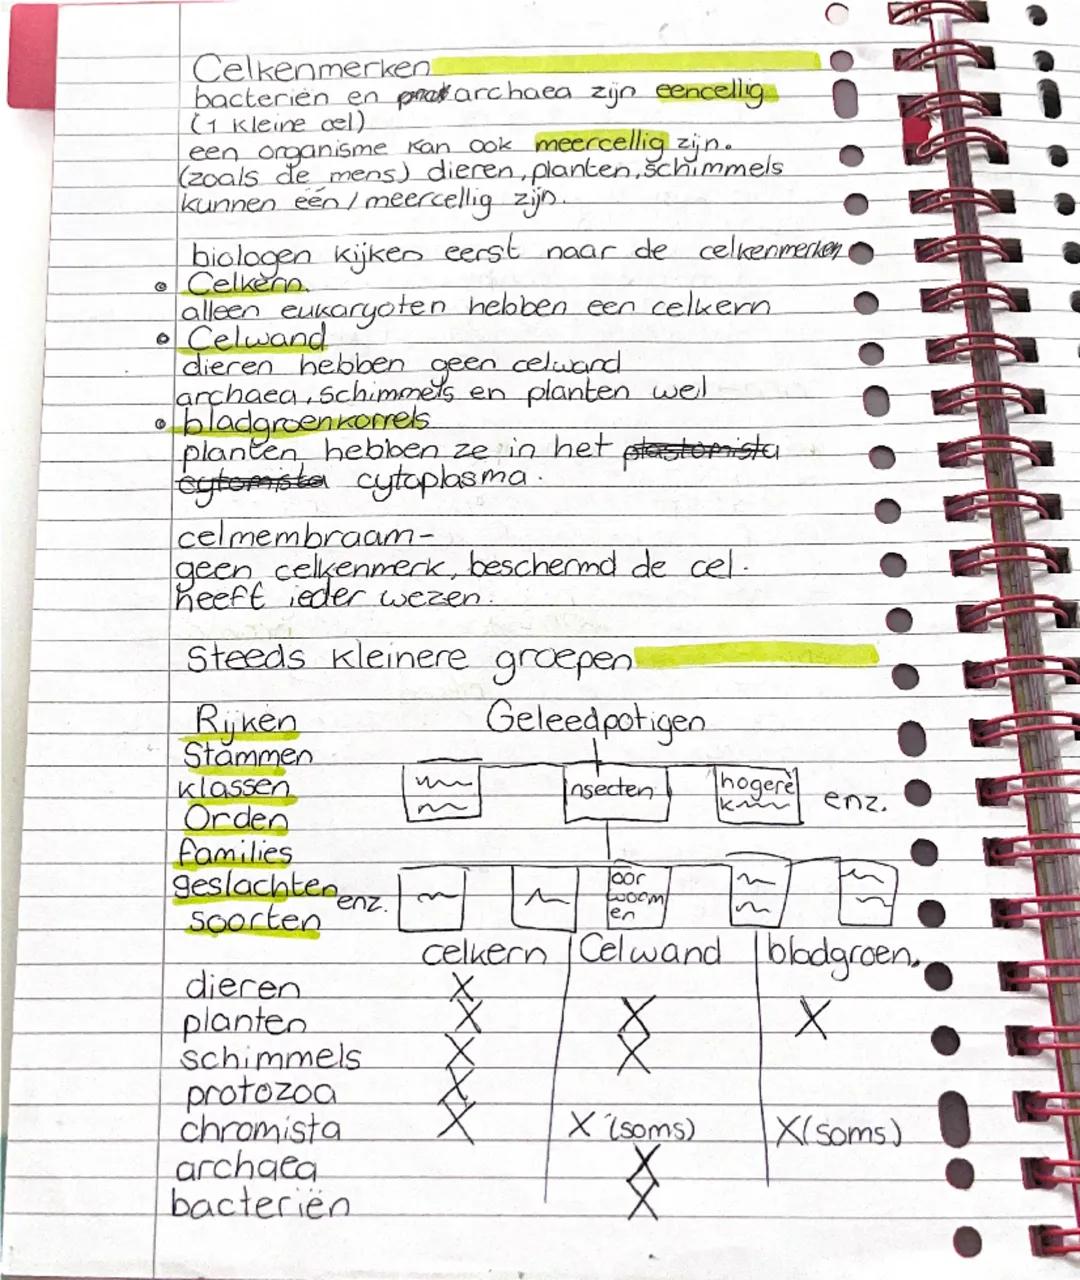 Celkenmerken
bacteriën en archaea zijn eencellig
(1 kleine cel)
een organisme kan ook meercellig zijn.
(zoals de mens) dieren, planten, schimmels
kunnen één/meercellig zijn.
biologen kijken eerst naar de celkenmerken
Celkern
alleen eukaryoten hebben een celkern
Celwand
dieren hebben geen celwand
archaea, schimmels en planten wel
bladgroenkorrels
planten hebben ze in het plastomista
cytomista cytoplasma.
celmembraam-
geen celkenmerk, beschermd de cel.
heeft ieder wezen.
Steeds kleinere groepen
Rijken
Stammen
klassen
Orden
families
geslachten
soorten
Geleedpotigen
insecten
hogere
k
enz.
enz.
oor
worm
en
celkern | Celwand | bladgroen.
dieren X
planten X X X
schimmels X X
protozoa X
chromista X X (soms) X (soms)
archaea X
bacteriën X